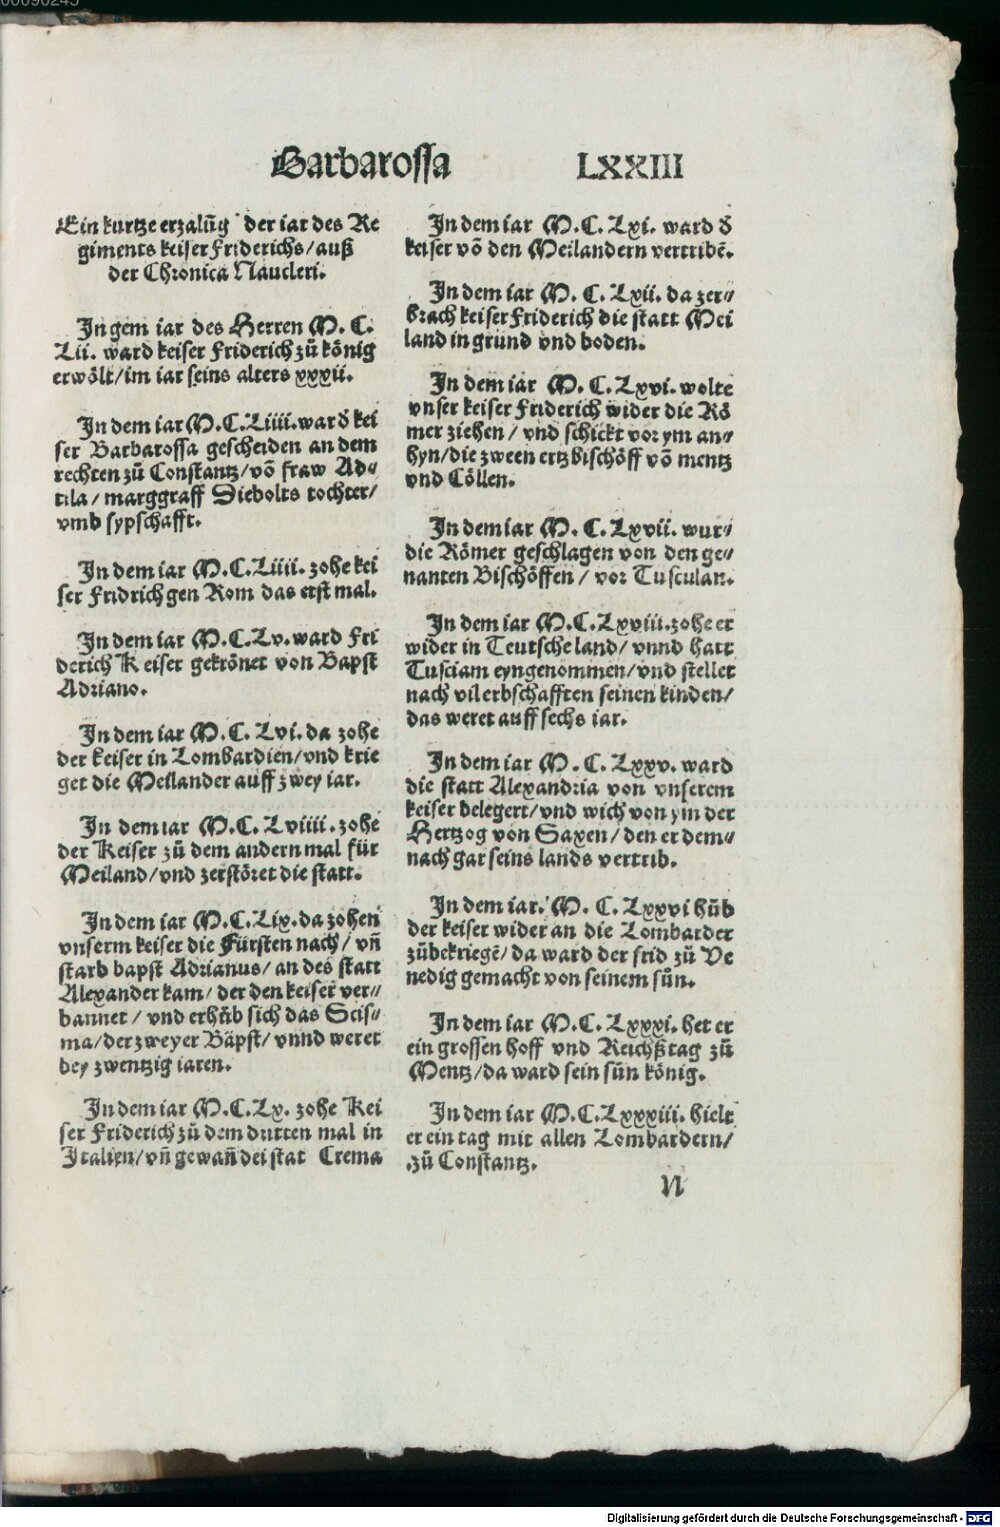 00090245
Barbarossa LXXIII
Ein kurtze erzalūg der iar des Re
giments keiser Friderichs/auß
der Chronica Naucleri.
Ingem iar des Herren M. C.
Lii. ward keiser Friderich zů könig
erwölt/im iar seins alters xxxii.
In dem iar M.C.Liiii.ward kei
ser Barbarossa gescheiden an dem
rechten zů Constantz/vō fraw Ad⸗
tila/marggraff Diebolts tochter/
vmb sypschafft.
In dem iar M.C.Liiii. zohe kei
ser Fridrich gen Rom das erst mal.
In dem iar M.C.Lv. ward Fri
derich Keiser gekrönet von Bapst
Adriano.
In dem iar M.C. Lvi. da zohe
der keiser in Lombardien/vnd krie
get die Meilander auff zwey iar.
In dem iar M.C. Lviiii. zohe
der Keiser zů dem andern mal für
Meiland/vnd zerstöret die statt.
In dem iar M.C.Lix. da zohen
vnserm keiser die Fürsten nach/vn̄
starb bapst Adrianus/an des statt
Alexander kam/der den keiser ver⸗
bannet/vnd erhůb sich das Scis⸗
ma/der zweyer Bäpst/vnnd weret
bey zwentzig iaren.
In dem iar M.C.Lx. zohe Kei
ser Friderich zů dem dritten mal in
Italien/vn̄ gewan̄ dei stat Crema
In dem iar M.C. Lxi. ward ð
keiser vō den Meilandern vertribē.
In dem iar M. C. Lxii. da zer⸗
brach keiser Friderich die statt Mei
land in grund vnd boden.
In dem iar M. C. Lxvi. wolte
vnser keiser Friderich wider die Rö
mer ziehen/vnd schickt vor ym an⸗
hyn/die zween ertzbischöff vō mentz
vnd Cöllen.
In dem iar M. C. Lxvii. wur⸗
die Römer geschlagen von den ge⸗
nanten Bischöffen/vor Tusculan.
In dem iar M.C.Lxviii. zohe er
wider in Teutsche land/vnnd hatt
Tusciam eyngenommen/vnd stellet
nach vil erbschafften seinen kinden/
das weret auff sechs iar.
In dem iar M.C. Lxxv. ward
die statt Alexandria von vnserem
keiser belegert/vnd wich von ym der
Hertzog von Saxen/den er dem⸗
nach gar seins lands vertrib.
In dem iar. M. C. Lxxvi hůb
der keiser wider an die Lombarder
zůbekriegē/da ward der frid zů Ve
nedig gemacht von seinem sůn.
In dem iar M.C. Lxxxi. het er
ein grossen hoff vnd Reichßtag zů
Mentz/da ward sein sůn könig.
In dem iar M.C.Lxxxiii. hielt
er ein tag mit allen Lombardern/
zů Constantz.
N
Digitalisierung gefördert durch die Deutsche Forschungsgemeinschaft - DFG